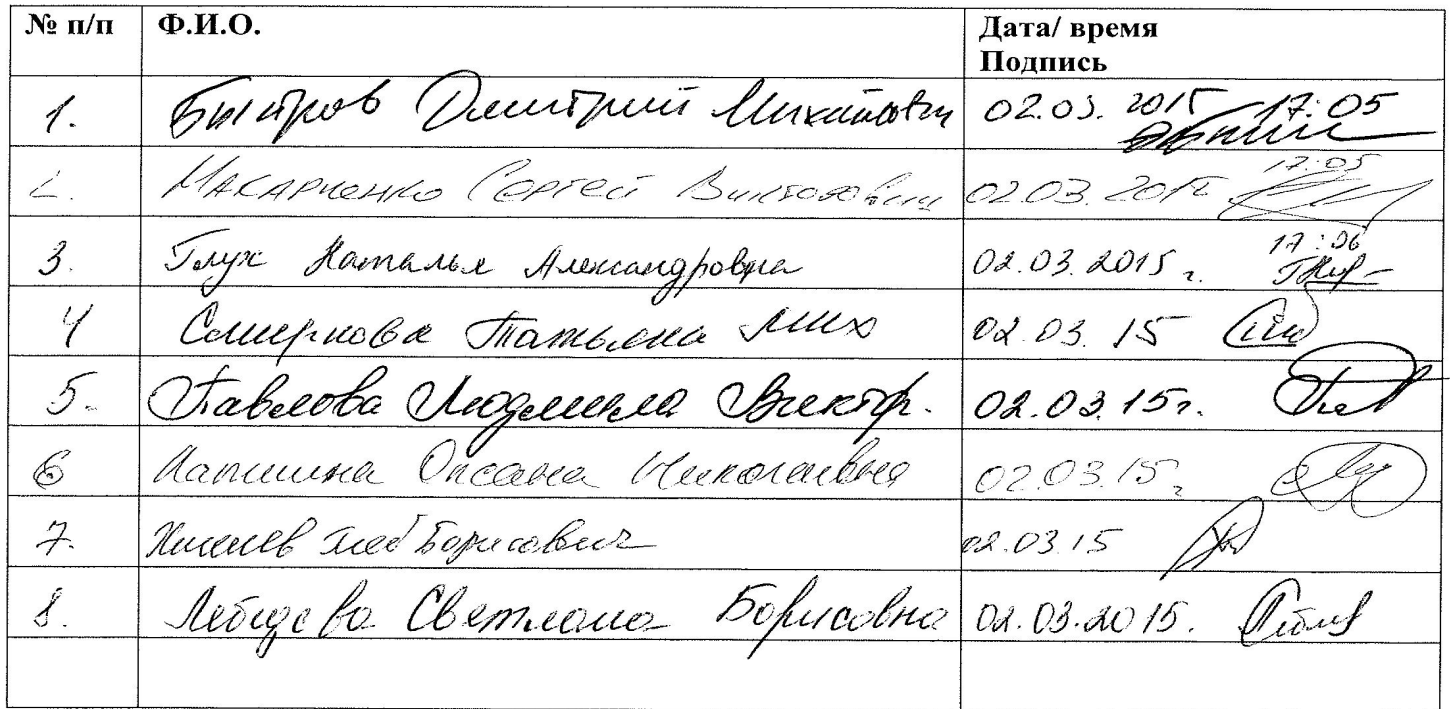 № п/п Ф.И.О. Дата/ время
Подпись
1. Быстров Дмитрий Михайлович 02.03. 2015 17:05
2. Макарченко Сергей Викторович 02.03. 2015 17:05
3. Глух Наталья Александровна 02.03.2015 г. 17:06
4 Смирнова Татьяна Мих 02.03. 15
5. Павлова Людмила Виктр. 02.03.15г.
6 Оксана Николаевна 02.03.15г
7. Глеб Борисович 02.03.15
8. Лебедева Светлана Борисовна 02.03.2015.